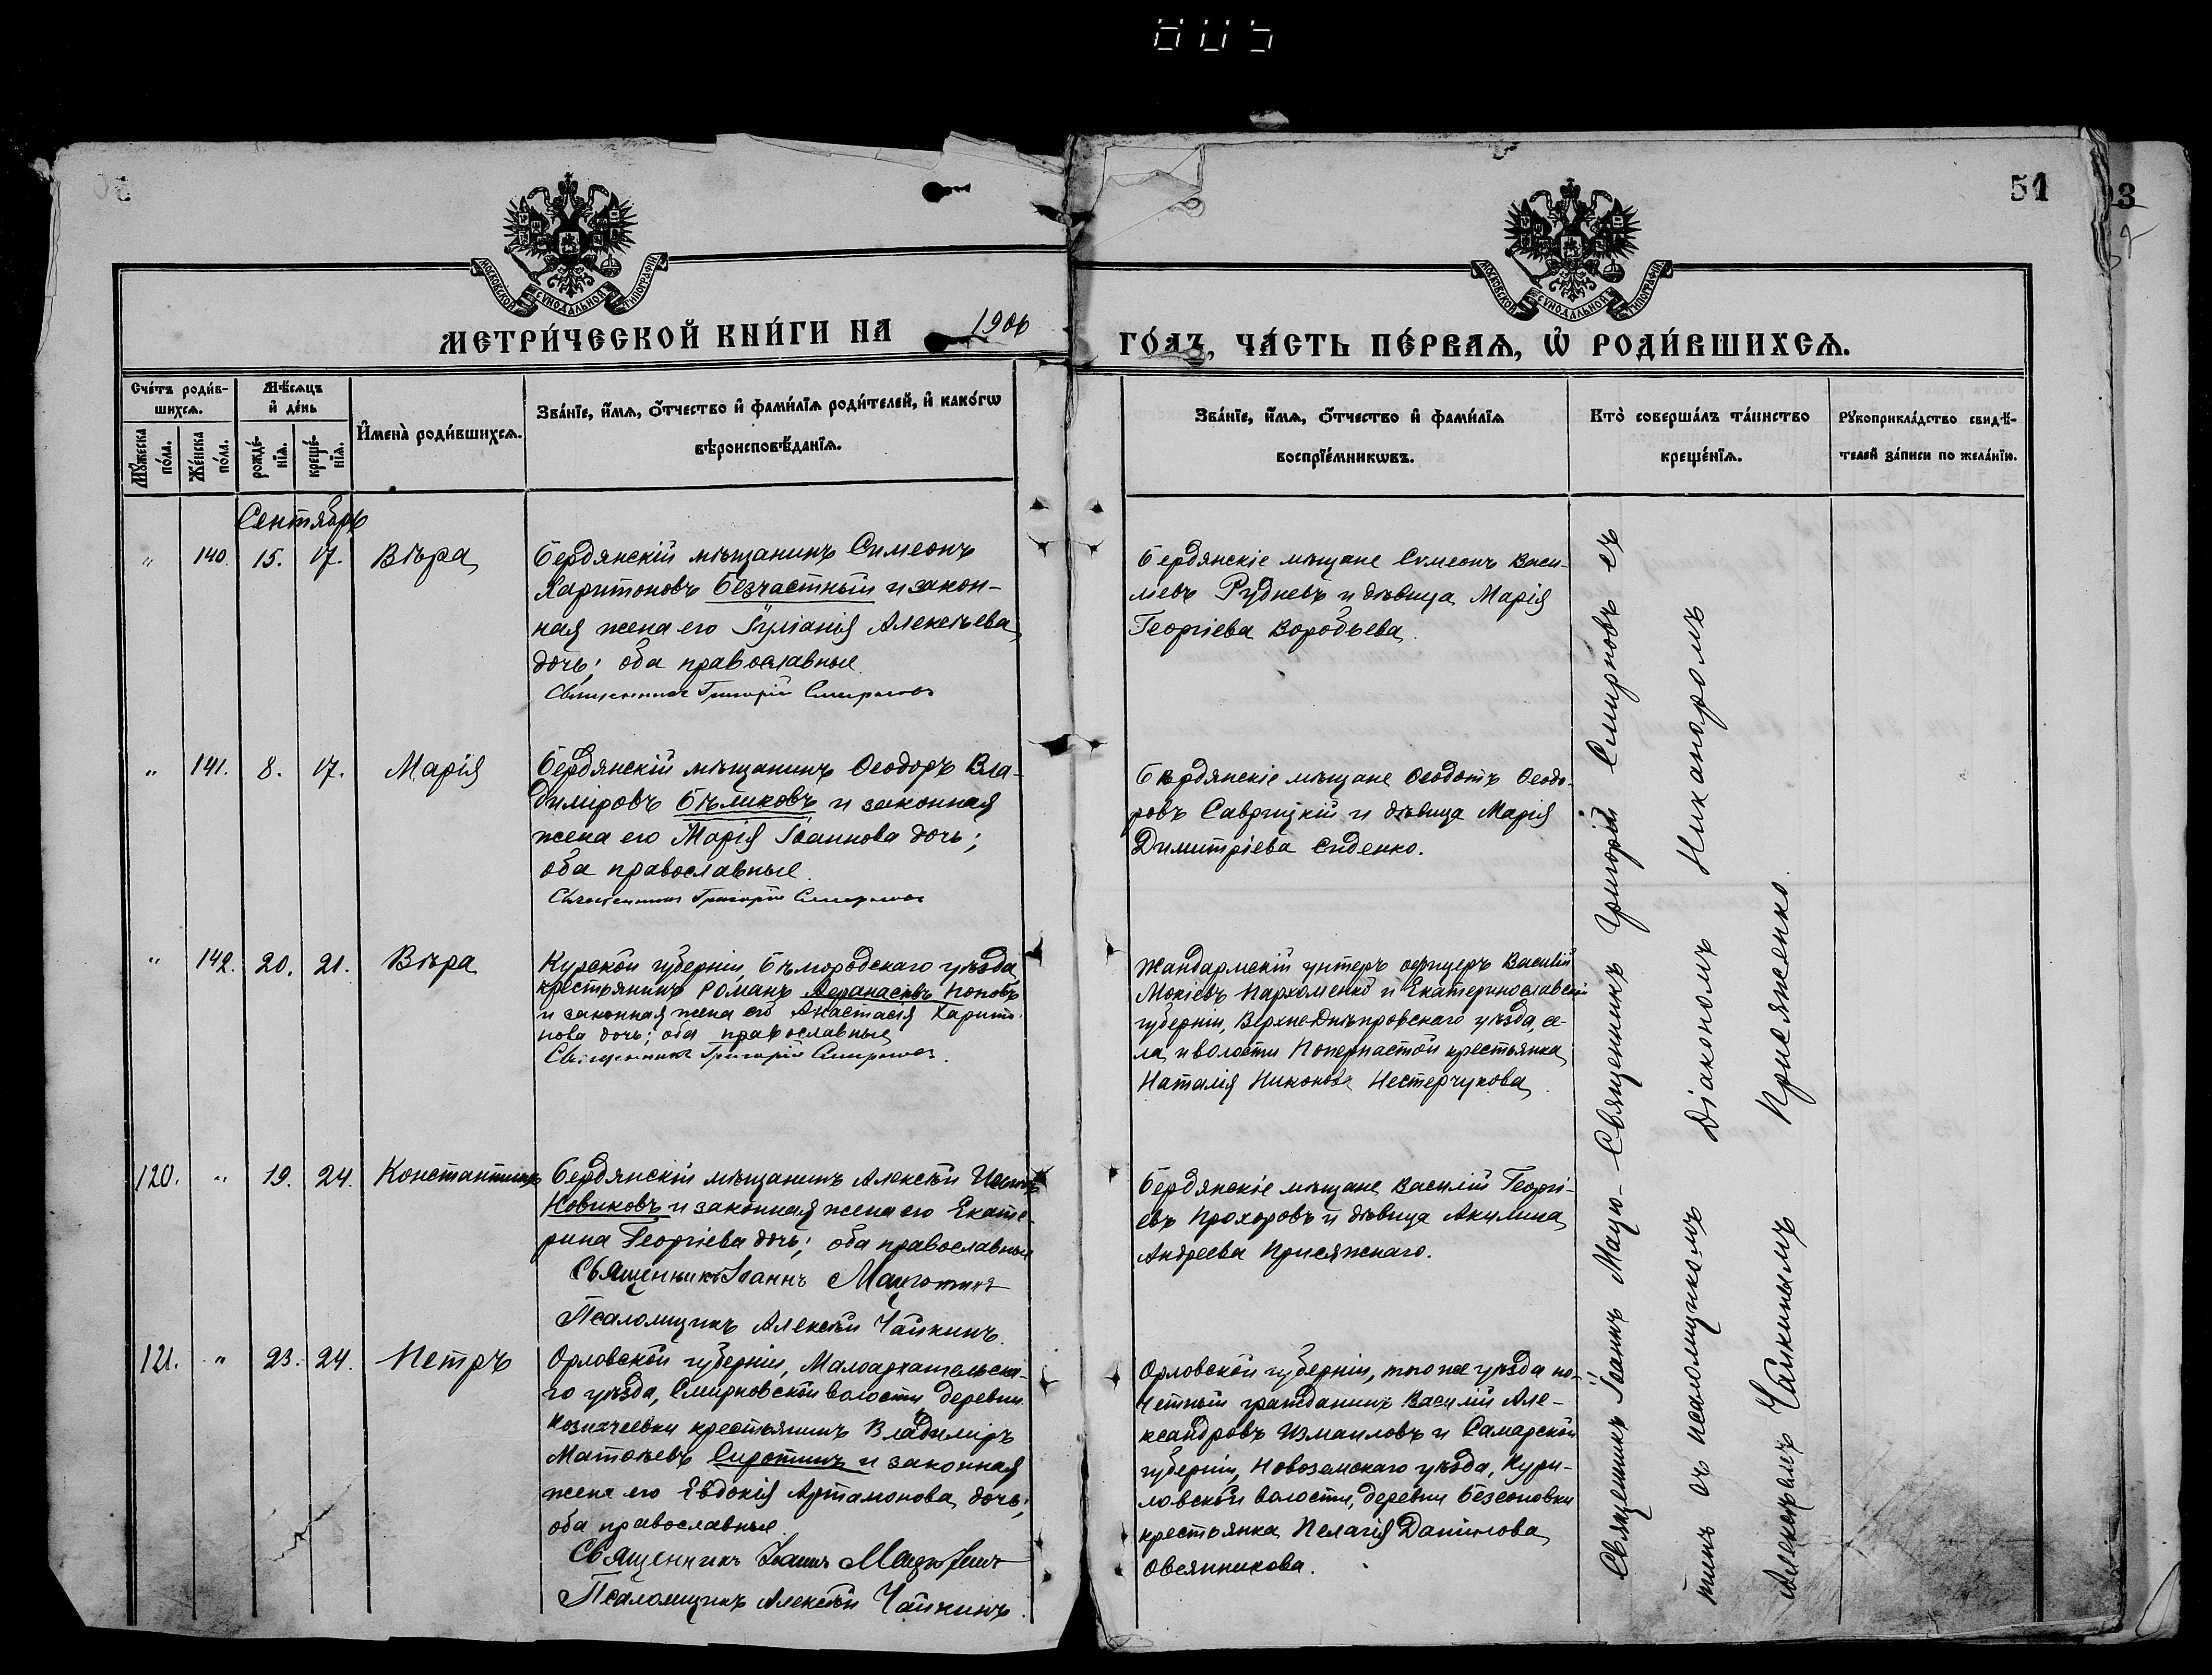 51
МОСКОВСКОЙ СѴНОДАЛЬНОЙ ТИПОГРАФІИ
МОСКОВСКОЙ СѴНОДАЛЬНОЙ ТИПОГРАФІИ
МЕТРИ́ЧЕСКОЙ КНИ́ГИ НА 1906 ГО́ДЪ, ЧА́СТЬ ПЕ́РВАѦ, Ѡ҆ РОДИ́ВШИХСѦ.
Сче́тъ роди́в-
шихсѧ.
Мѹ́жеска по́ла.
Же́нска по́ла.
Мѣ́сѧцъ
и҆ де́нь
рожде́-
нїѧ.
креще́-
нїѧ.
И҆мена̀ роди́вшихсѧ.
Зва́нїе, и҆́мѧ, ѻ҆́тчество и҆ фами́лїѧ роди́телей, и҆ како́гѡ
вѣроисповѣ́данїѧ.
Зва́нїе, и҆́мѧ, ѻ҆́тчество и҆ фами́лїѧ
воспрїе́мникѡвъ.
Кто̀ соверша́лъ та́инство
креще́нїѧ.
Рѹкоприкла́дство свидѣ́-
телей за́писи по жела́нїю.
Сентябрь
" 140. 15. 17. Вѣра
Бердянскій мѣщанинъ Симеонъ
Харитоновъ Безчастный и закон-
ная жена его Іуліанія Алексѣева
дочь; оба православные
Священникъ Григорій Смирновъ
Бердянскіе мѣщане Симеонъ Васи-
ліевъ Рудневъ и дѣвица Марія
Георгіева Воробьева.
" 141. 8. 17. Марія
Бердянскій мѣщанинъ Ѳеодоръ Вла-
диміровъ Бѣликовъ и законная
жена его Марія Іоаннова дочь;
оба православные.
Священникъ Григорій Смирновъ
Бердянскіе мѣщане Ѳеодотъ Ѳеодо-
ровъ Саврицкій и дѣвица Марія
Димитріева Сиденко.
" 142. 20. 21. Вѣра
Курской губерніи, Бѣлгородскаго уѣзда
крестьянинъ Романъ Аѳанасіевъ Поповъ
и законная жена его Анастасія Харито-
нова дочь; оба православные
Священникъ Григорій Смирновъ.
Жандармскій унтеръ офицеръ Василій
Мокіевъ Пархоменко и Екатеринославской
губерніи, Верхне-Днѣпровскаго уѣзда, се-
ла и волости крестьянка
Наталія Никонова Нестерчукова.
120. " 19. 24. Константинъ
Бердянскій мѣщанинъ Алексѣй
Новиковъ и законная жена его Екате-
рина Георгіева дочь; оба православные
Священникъ Іоаннъ Мацютинъ
Псаломщикъ Алексѣй Чайкинъ.
Бердянскіе мѣщане Василій Георгі-
евъ Прохоровъ и дѣвица Акилина
Андреева Присяжнаго.
121. " 23. 24. Петръ
Орловской губерніи, Малоархангельска-
го уѣзда, Смирновской волости, деревни
Казначеевки крестьянинъ Владиміръ
Матѳѣевъ Сиротинъ и законная
жена его Евдокія Артамонова дочь;
оба православные.
Священникъ Іоаннъ Мацютинъ
Псаломщикъ Алексѣй Чайкинъ.
Орловской губерніи, того же уѣзда по-
четный гражданинъ Василій Але-
ксандровъ Измаиловъ и Самарской
губерніи, Новоузенскаго уѣзда, Кури-
ловской волости, деревни Безсоновки
крестьянка Пелагія Даніилова
Овсянникова.
Священникъ Іоаннъ Мацю- Священникъ Григорій Смирновъ съ
тинъ съ псаломщикомъ Діакономъ Никаноромъ
Алексѣемъ Чайкинымъ Присяженко.